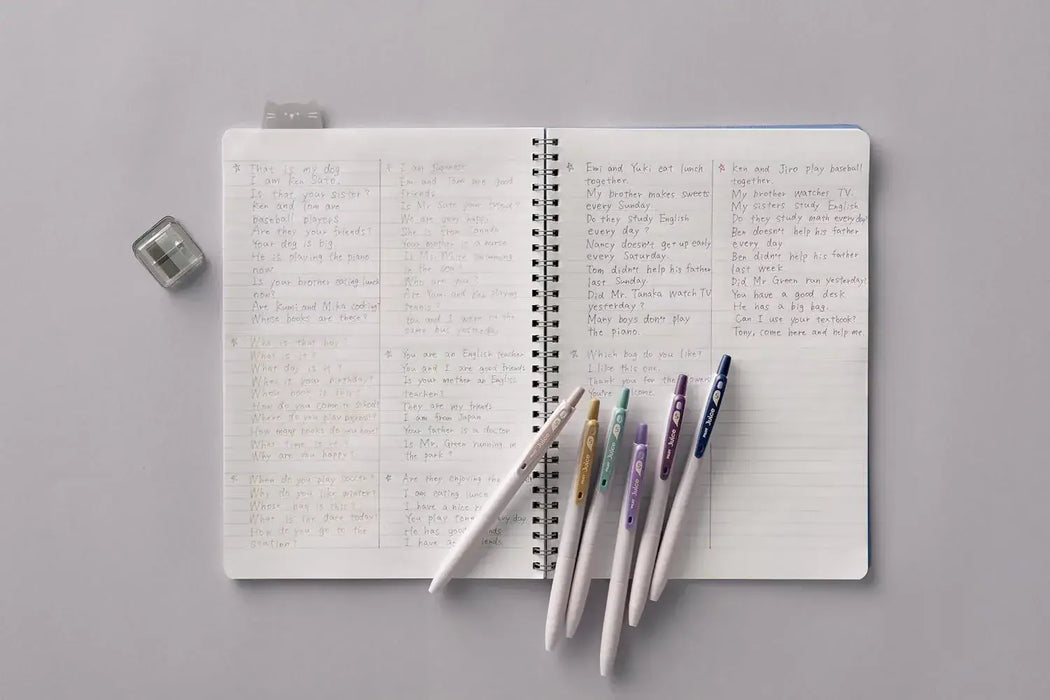 ☆ That is my dog
I am Ken Sato.
Is that your sister?
Ken and Tom are
baseball players
Are they your friends?
Your dog is big
He is playing the piano
now
Is your brother eating lunch
now?
Are Kumi and Mika cooking?
Whose books are these?
☆ Who is that boy?
What is it?
What day is it?
When is your birthday?
Whose book is this
How do you come to school?
Where do you play
How many books do you have?
What time is it?
Why are you happy?
☆ When do you play soccer?
Why do you like winter?
Whose bag is this?
What is the date today?
How do you go to the
station?
☆ I am Japanese
Emi and Tom are good
friends
Is Mr Sato your friend?
We are very happy
She is from Canada
Your mother is a nurse
Is Mr. Mike swimming
in the sea?
Who are you?
Are Yumi and Ken playing
tennis?
You and I were in the
same bus yesterday
☆ You are an English teacher
You and I are good friends
Is your mother an English
teacher?
They are my friends
I am from Japan
Your father is a doctor
Is Mr. Green running in
the park?
☆ Are they enjoying the
I am eating lunch
I have a nice
You play every day
He has good
I have
☆ Emi and Yuki eat lunch
together.
My brother makes sweets
every Sunday.
Do they study English
every day?
Nancy doesn't get up early
every Saturday.
Tom didn't help his father
last Sunday.
Did Mr. Tanaka watch TV
yesterday?
Many boys don't play
the piano.
☆ Which bag do you like?
I like this one.
Thank you for the
☆ Ken and Jiro play baseball
together.
My brother watches TV.
My sisters study English
Do they study math everyday?
Ben doesn't help his father
every day
Ben didn't help his father
last week.
Did Mr Green run yesterday?
You have a good desk
He has a big bag.
Can I use your textbook?
Tony, come here and help me.
PILOT Juice
PILOT Juice
PILOT Juice
PILOT Juice
PILOT Juice
PILOT Juice